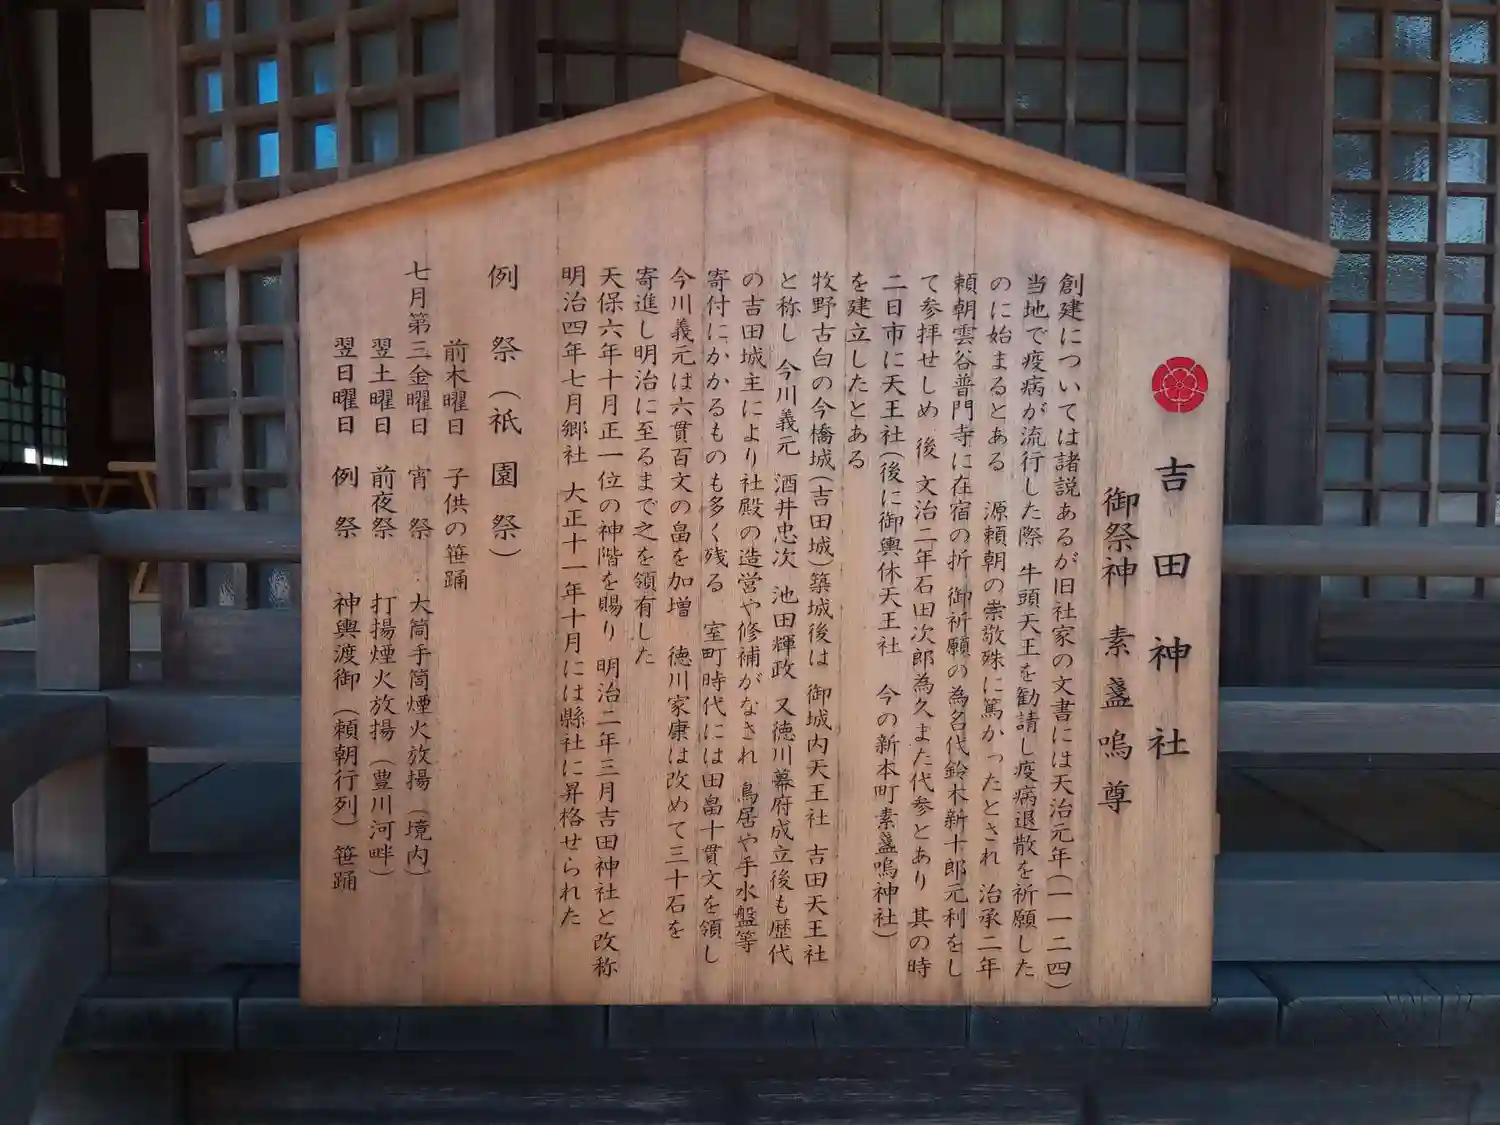 吉田神社
御祭神 素盞嗚尊
創建については諸説あるが旧社家の文書には天治元年(一一二四)
当地で疫病が流行した際 牛頭天王を勧請し疫病退散を祈願した
のに始まるとある 源頼朝の崇敬殊に篤かったとされ 治承二年
頼朝雲谷普門寺に在宿の折 御祈願の為名代鈴木新十郎元利をし
て参拝せしめ 後 文治二年石田次郎為久また代参とあり 其の時
二日市に天王社(後に御輿休天王社 今の新本町素盞嗚神社)
を建立したとある
牧野古白の今橋城(吉田城)築城後は 御城内天王社 吉田天王社
と称し 今川義元 酒井忠次 池田輝政 又徳川幕府成立後も歴代
の吉田城主により社殿の造営や修補がなされ 鳥居や手水盤等
寄付にかかるものも多く残る 室町時代には田畠十貫文を領し
今川義元は六貫百文の畠を加増 徳川家康は改めて三十石を
寄進し明治に至るまで之を領有した
天保六年十月正一位の神階を賜り 明治二年三月吉田神社と改称
明治四年七月郷社 大正十一年十月には縣社に昇格せられた
例 祭(祇園祭)
前木曜日 子供の笹踊
七月第三金曜日 宵祭 大筒手筒煙火放揚(境内)
翌土曜日 前夜祭 打揚煙火放揚(豊川河畔)
翌日曜日 例祭 神輿渡御(頼朝行列)笹踊